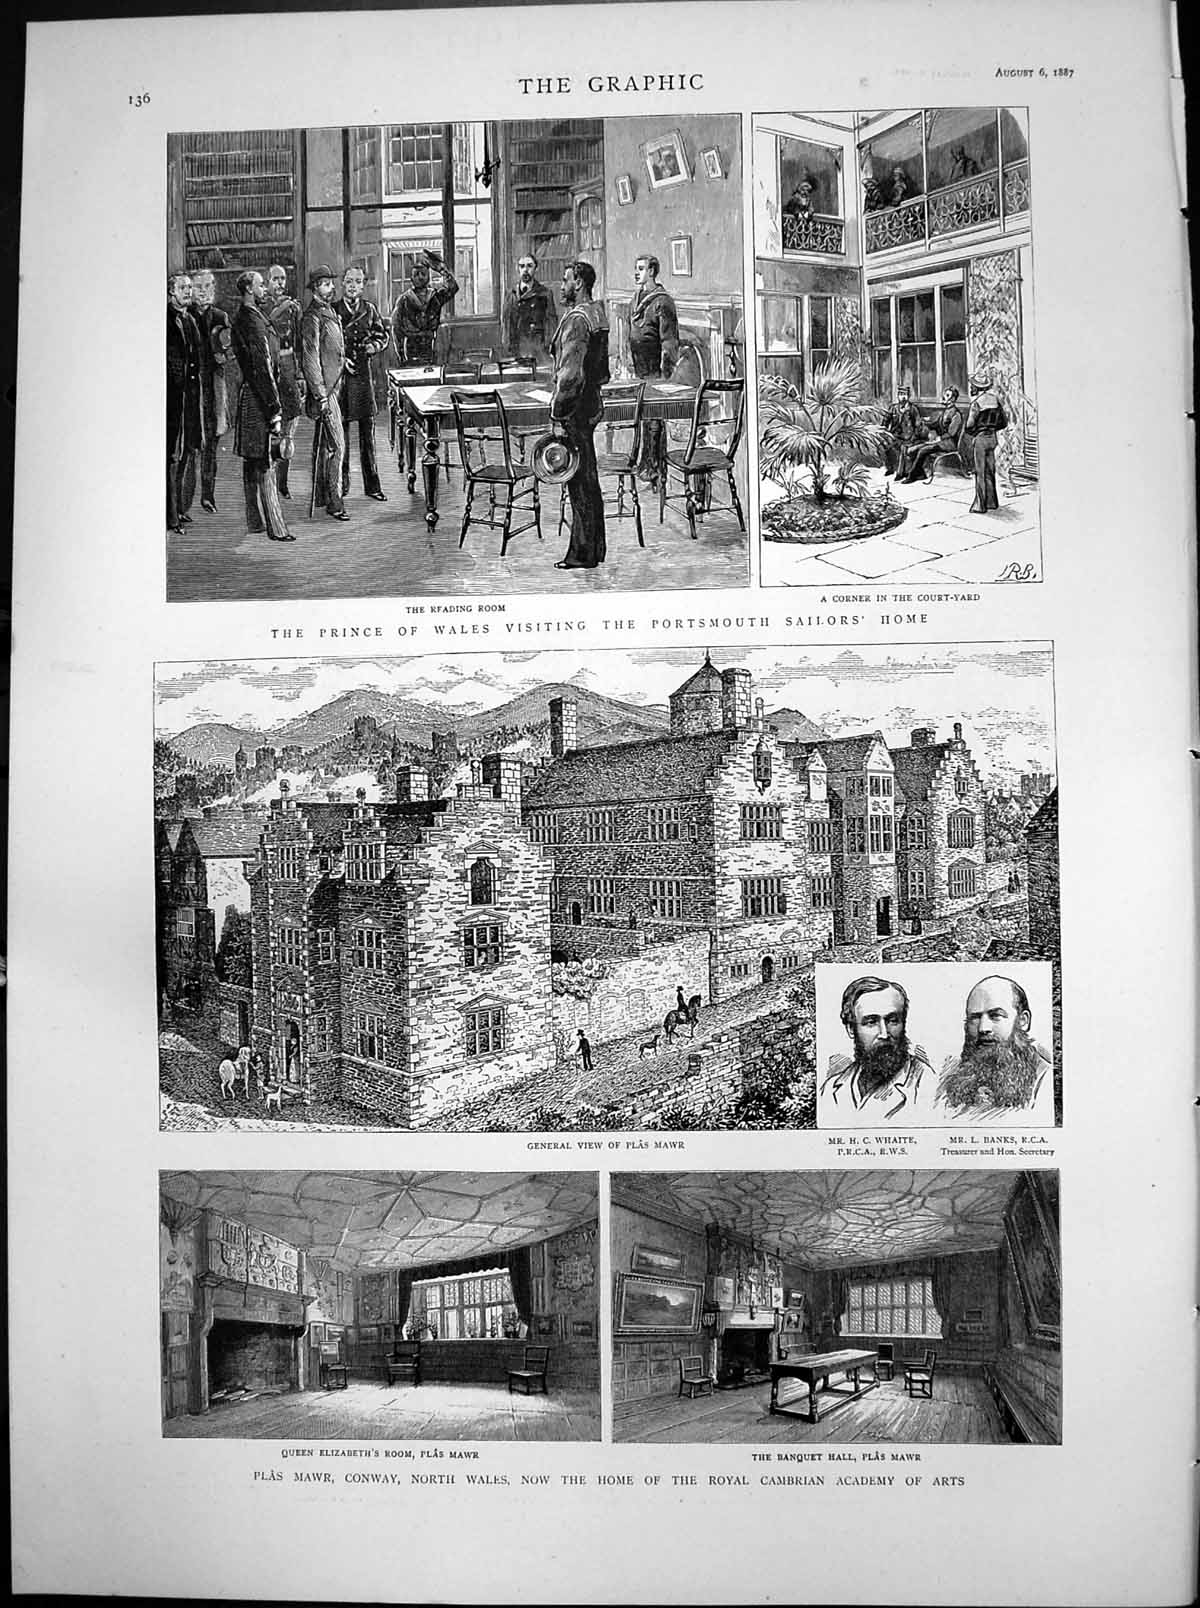 136
THE GRAPHIC
AUGUST 6, 1887
I.R.B.
THE READING ROOM
A CORNER IN THE COURT-YARD
THE PRINCE OF WALES VISITING THE PORTSMOUTH SAILORS' HOME
GENERAL VIEW OF PLÂS MAWR
MR. H. C. WHAITE,
P.R.C.A., R.W.S.
MR. L. BANKS, R.C.A.
Treasurer and Hon. Secretary
QUEEN ELIZABETH'S ROOM, PLÂS MAWR
THE BANQUET HALL, PLÂS MAWR
PLÂS MAWR, CONWAY, NORTH WALES, NOW THE HOME OF THE ROYAL CAMBRIAN ACADEMY OF ARTS